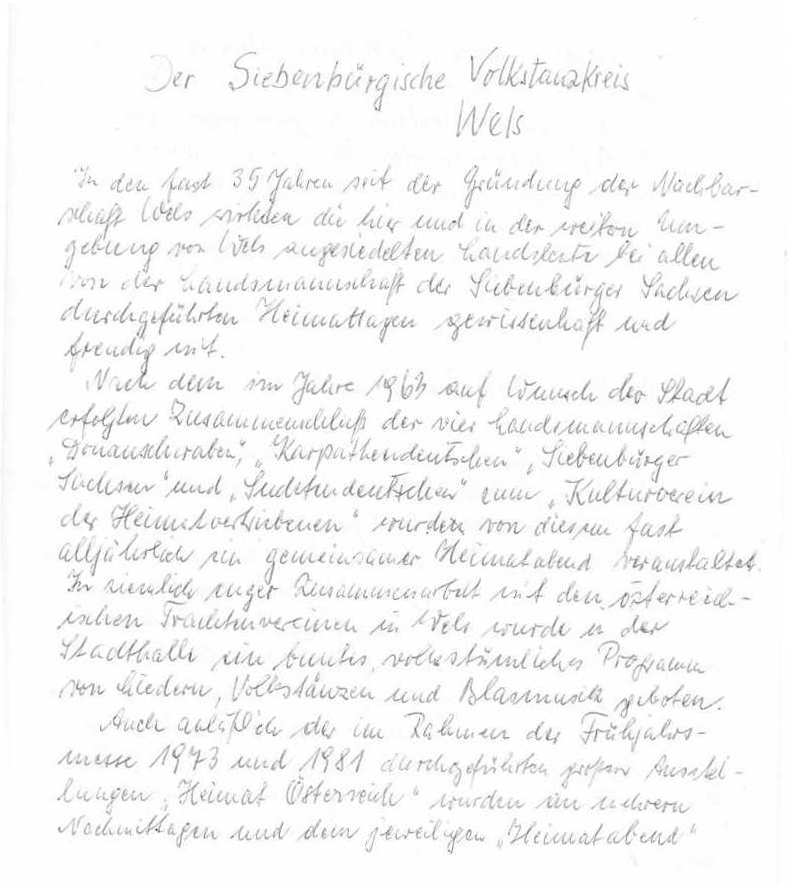 Der Siebenbürgische Volkstanzkreis
Wels
In den fast 35 Jahren seit der Gründung der Nachbar-
schaft Wels wirkten die hier und in der weiten Um-
gebung von Wels angesiedelten Landsleute bei allen
von der Landsmannschaft der Siebenbürger Sachsen
durchgeführten Heimattagen gewissenhaft und
freudig mit.
Nach dem im Jahre 1963 auf Wunsch der Stadt
erfolgten Zusammenschluß der vier Landsmannschaften
„Donauschwaben", „Karpathendeutschen" „Siebenbürger
Sachsen" und „Sudetendeutschen" zum „Kulturverein
der Heimatvertriebenen" wurden von diesem fast
alljährlich ein gemeinsamer Heimatabend veranstaltet.
In ziemlich enger Zusammenarbeit mit den österreich-
ischen Trachtenvereinen in Wels wurde in der
Stadthalle ein buntes, volkstümliches Programm
von Liedern, Volkstänzen und Blasmusik geboten.
Auch anläßlich der im Rahmen der Frühjahrs-
messe 1973 und 1981 durchgeführten großen Ausstel-
lungen „Heimat Österreich" wurden an mehrern
Nachmittagen und dem jeweiligen „Heimatabend"